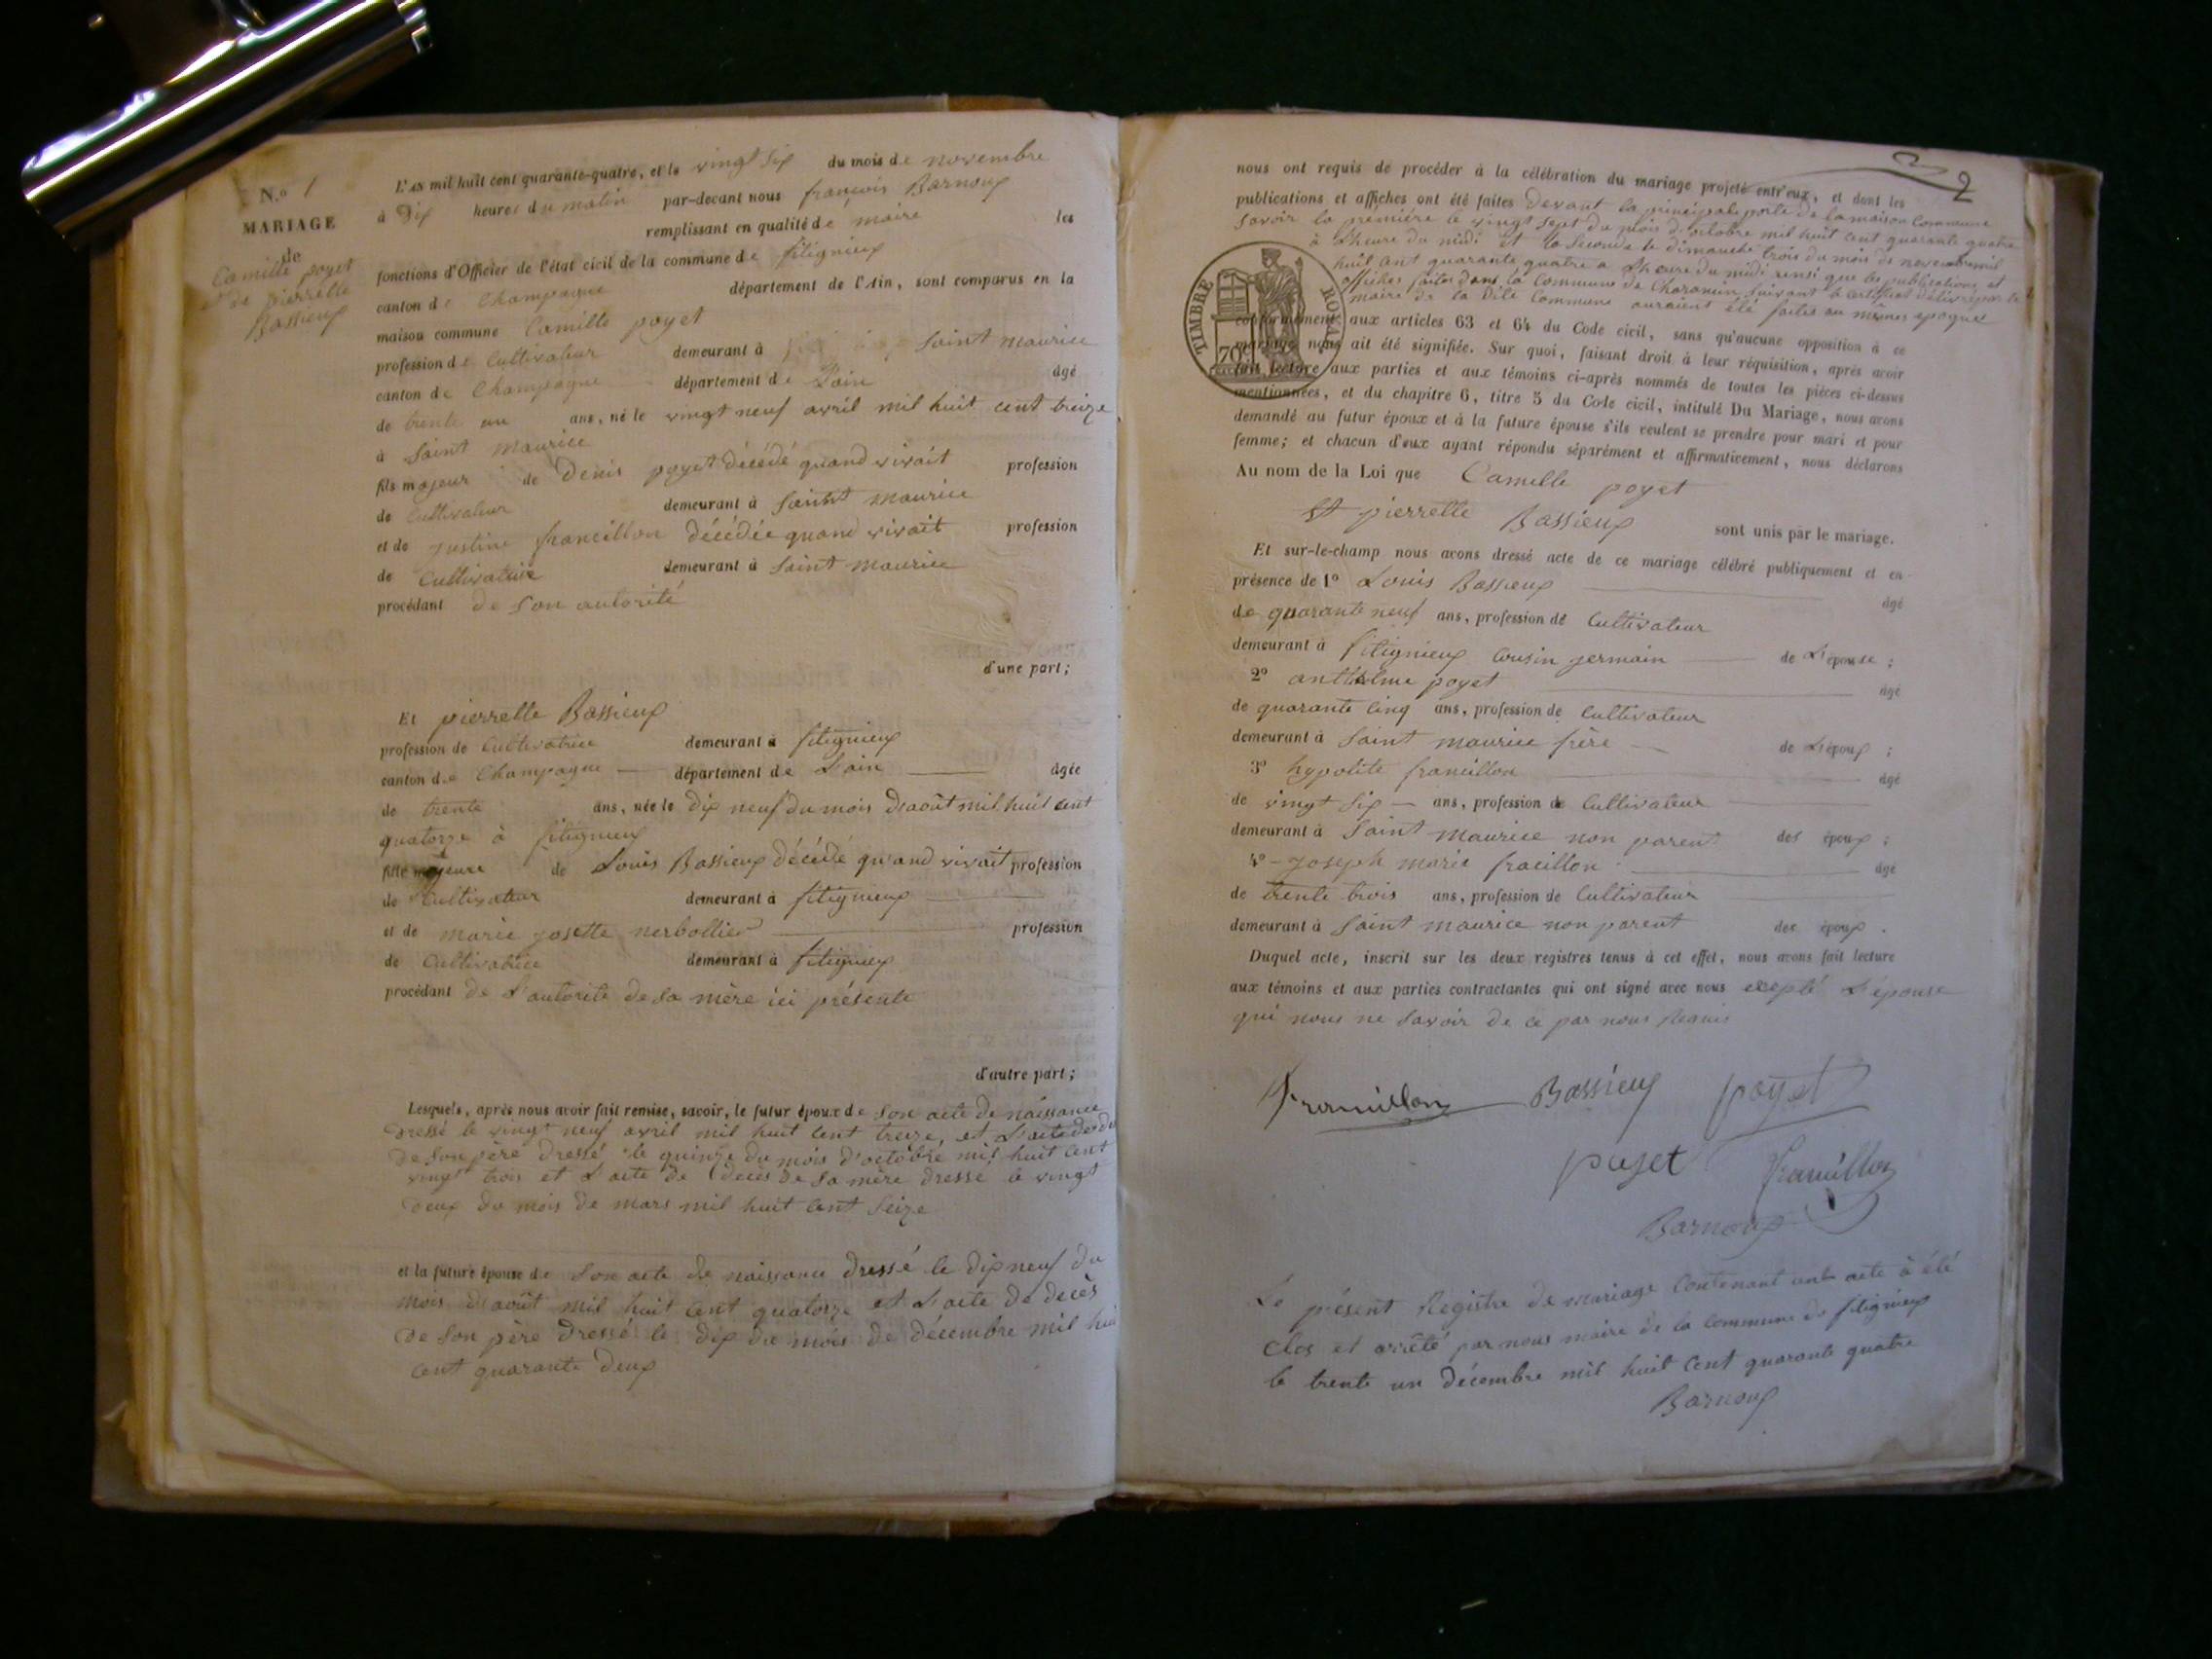 N.o 1
MARIAGE
de
Camille poyet
et de pierrette
Bassieux
L'AN mil huit cent quarante-quatre, et le vingt six du mois de novembre
à Dix heures du matin par-devant nous françois Barnoux
remplissant en qualité de maire les
fonctions d'Officier de l'état civil de la commune de fitignieux
canton de Champagne département de l'Ain, sont comparus en la
maison commune Camille poyet
profession de Cultivateur demeurant à Saint maurice
canton de Champagne département de L'ain âgé
de trente un ans, né le vingt neuf avril mil huit cent treize
à Saint maurice
fils majeur de Denis poyet décédé quand vivait profession
de Cultivateur demeurant à Saint maurice
et de justine francillon décédée quand vivait profession
de Cultivatrice demeurant à Saint maurice
procédant de son autorité
d'une part;
Et pierrette Bassieux
profession de Cultivatrice demeurant à fitignieux
canton de Champagne département de L'ain âgée
de trente ans, née le dix neuf du mois d'août mil huit cent
quatorze à fitignieux
fille majeure de Louis Bassieux décédé quand vivait profession
de Cultivateur demeurant à fitignieux
et de marie josette nerbollier profession
de Cultivatrice demeurant à fitignieux
procédant de L'autorité de sa mère ici présente
d'autre part;
Lesquels, après nous avoir fait remise, savoir, le futur époux de Son acte de naissance
dressé le vingt neuf avril mil huit cent treize, et L'acte de
de Son père dressé le quinze du mois d'octobre mil huit cent
vingt trois et L'acte de décès de sa mère dressé le vingt
deux du mois de mars mil huit cent Seize
et la future épouse de Son acte de naissance dressé le dix neuf du
mois d'août mil huit cent quatorze et L'acte de décès
de Son père dressé le dix du mois de décembre mil hui
cent quarante deux
2
nous ont requis de procéder à la célébration du mariage projeté entr'eux, et dont les
publications et affiches ont été faites devant la principale porte de la maison Commune
Savoir la première le vingt sept du mois d'octobre mil huit cent quarante quatre
à L'heure du midi et la Seconde le dimanche trois du mois de novembre mil
huit cent quarante quatre a L'heure du midi ainsi que les publications et
affiches faites dans la Commune de Charancin suivant le certificat délivré par le
maire de la dite Commune auraient été faites au mêmes epoques
TIMBRE ROYAL
70c
conformément aux articles 63 et 64 du Code civil, sans qu'aucune opposition à ce
mariage nous ait été signifiée. Sur quoi, faisant droit à leur réquisition, après avoir
fait lecture aux parties et aux témoins ci-après nommés de toutes les pièces ci-dessus
mentionnées, et du chapitre 6, titre 5 du Code civil, intitulé Du Mariage, nous avons
demandé au futur époux et à la future épouse s'ils veulent se prendre pour mari et pour
femme; et chacun d'eux ayant répondu séparément et affirmativement, nous déclarons
Au nom de la Loi que Camille poyet
Et pierrette Bassieux sont unis par le mariage.
Et sur-le-champ nous avons dressé acte de ce mariage célébré publiquement et en
présence de 1o Louis Bassieux âgé
de quarante neuf ans, profession de Cultivateur
demeurant à fitignieux Cousin germain de L'épouse;
2o anthelme poyet âgé
de quarante Cinq ans, profession de Cultivateur
demeurant à Saint maurice frère de L'époux;
3o hypolite francillon âgé
de vingt Six ans, profession de Cultivateur
demeurant à Saint maurice non parent des époux;
4o joseph marie fracillon âgé
de trente trois ans, profession de Cultivateur
demeurant à Saint maurice non parent des époux.
Duquel acte, inscrit sur les deux registres tenus à cet effet, nous avons fait lecture
aux témoins et aux parties contractantes qui ont signé avec nous excepté L'épouse
qui nous ne Savoir de ce par nous Requis
Francillon Bassieux poyet
poyet francillon
Barnoux
Le présent Registre de mariage Contenant un acte à été
Clos et arrêté par nous maire de la commune de fitignieux
le trente un décembre mil huit Cent quarante quatre
Barnoux